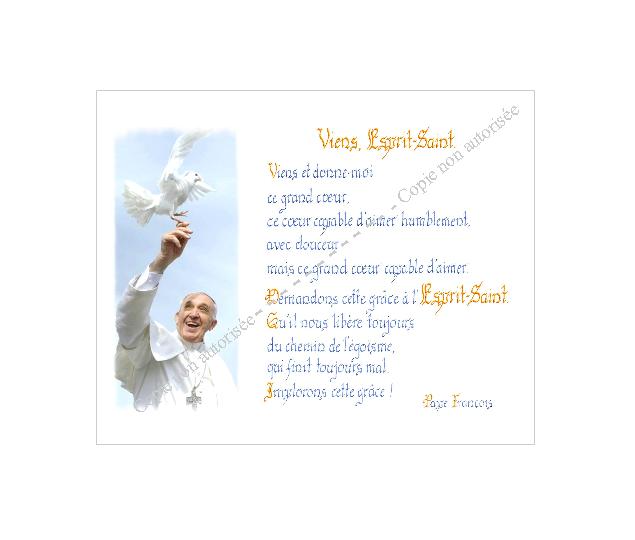 Viens, Esprit-Saint.
Viens et donne-moi
ce grand cœur,
ce cœur capable d'aimer humblement,
avec douceur
mais ce grand cœur capable d'aimer.
Demandons cette grâce à l'Esprit-Saint.
Qu'il nous libère toujours
du chemin de l'égoïsme,
qui finit toujours mal.
Implorons cette grâce !
Pape François
Copie non autorisée - - - - - - - - - - - - Copie non autorisée